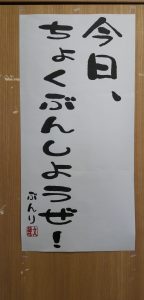 今日、
ちょくぶんしようぜ！
ぶんり